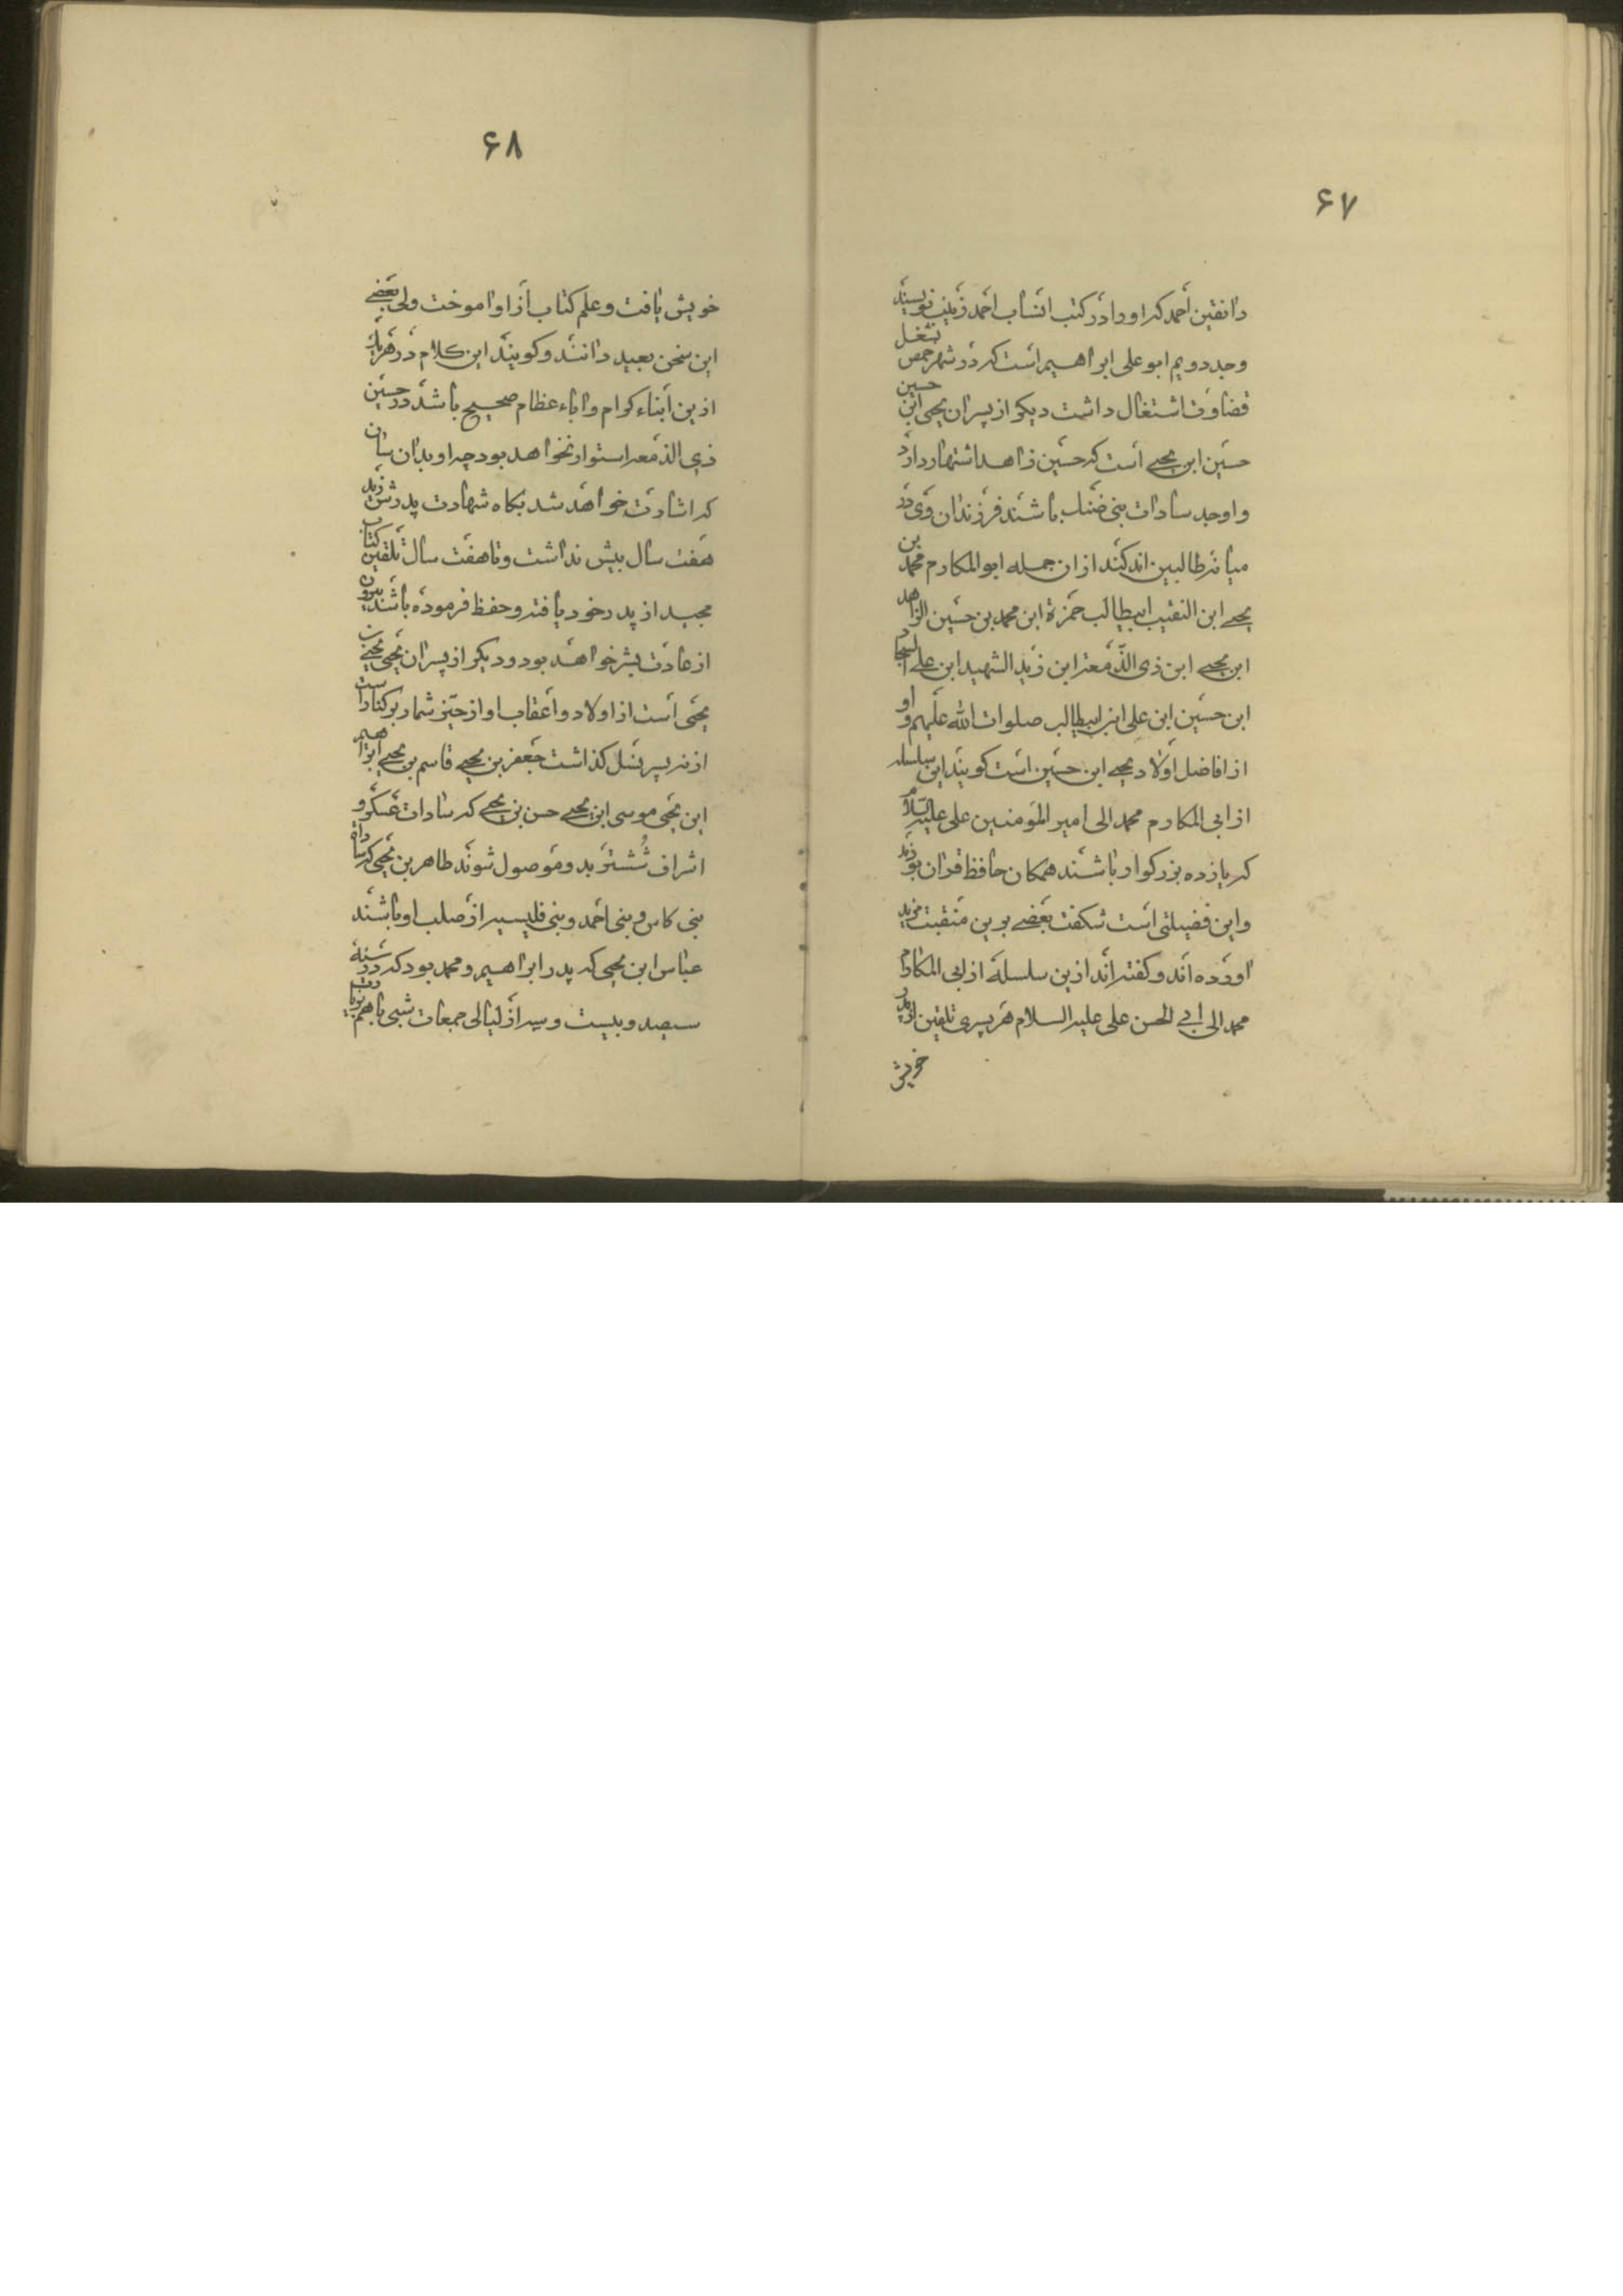 ۶۷
دانقین احمد که او را در کتب انساب احمد زینب نویسند
وجد دویم ابو علی ابراهیم است که در شهر حمص بشغل
قضاوت اشتغال داشت دیکر از پسران یحیی ابن حسین
حسین ابن یحیی است که حسین زاهد اشتهار دارد
و او جد سادات بنی باشند فرزندان وی در
میانه طالبین اندکند از ان جمله ابو المکارم محمد بن
یحیی ابن النقیب ابیطالب حمزة ابن محمد بن حسین الزاهد
ابن یحیی ابن ذی الدمعه ابن زید الشهید ابن علی السجاد
ابن حسین ابن علی ابن ابیطالب صلوات الله علیهم و او
از افاضل اولاد یحیی ابن حسین است کویند این سلسله
از ابی المکارم محمد الی امیر المؤمنین علی علیه السلام
که یازده بزرکوار باشند همکان حافظ قران بودند
و این فضیلتی است شکفت بعضی برین منقبت مزید
اورده اند و کفته اند ازین سلسله از ابی المکارم
محمد الی ابی الحسن علی علیه السلام هر پسری تلقین از پدر
خویش
۶۸
خویش یافت و علم کتاب از او اموخت ولی بعضی
این سخن بعید دانند و کویند این کلام در هر یک
ازین ابناء کرام و اباء عظام صحیح باشد در حسین
ذی الدمعه استوار نخواهد بود چه او بدان سان
که اشارت خواهد شد بکاه شهادت پدرش زید
هفت سال بیش نداشت و تا هفت سال تلقین کتاب
مجید از پدر خود یافته و حفظ فرموده باشند بیرون
از عادت بشر خواهد بود و دیکر از پسران یحیی یحیی بن
یحیی است از اولاد و اعقاب او از حیز شمار برکنار است
از نه پسر نسل کذاشت جعفر بن یحیی قاسم بن یحیی ابراهیم
ابن یحیی موسی ابن یحیی حسن بن یحیی که سادات عسکر و
اشراف شُشتر بدو موصول شوند طاهر بن یحیی که سادات
بنی کاس و بنی احمد و بنی فلیسیر از صلب او باشند
عباس ابن یحیی که پدر ابراهیم و محمد بود که در سنه
سیصد و بیست و سه از لیالی جمعات شبی با هم